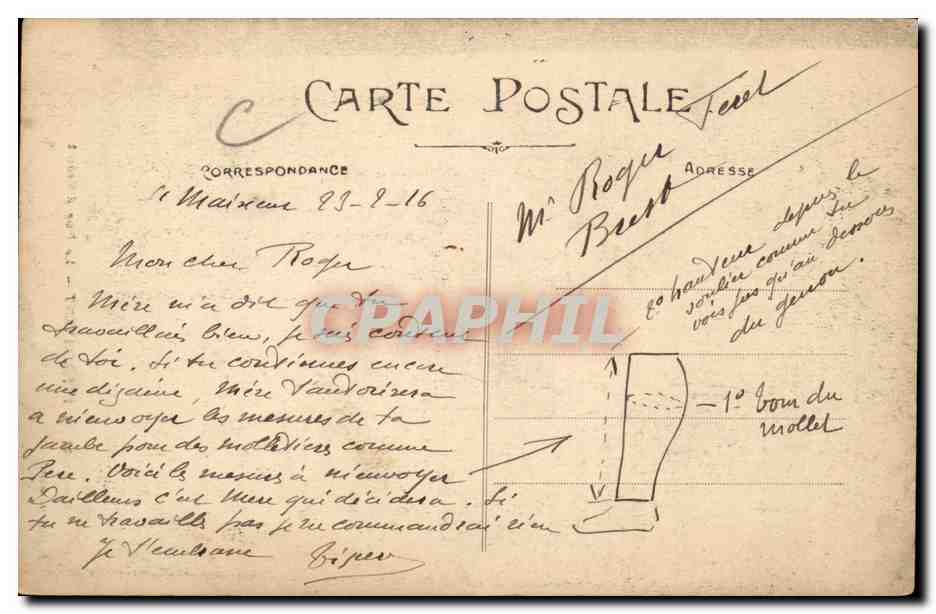 CARTE POSTALE
CORRESPONDANCE
ADRESSE
St Maixent 23-2-16
Mon cher Roger
Mère m'a dit que tu
travaillais bien, je suis content
de toi. Si tu continues encore
une dizaine, Mère t'autorisera
a m'envoyer les mesures de ta
jambe pour des molletières comme
Père. Voici les mesures à m'envoyer
D'ailleurs c'est Mère qui décidera. Si
tu ne travailles pas je ne commanderai rien
Je t'embrasse
Mr Roger Feret
Brest
2º hauteur depuis le
soulier comme tu
vois jusqu'au dessous
du genou.
- 1º tour du
mollet
CPAPHIL